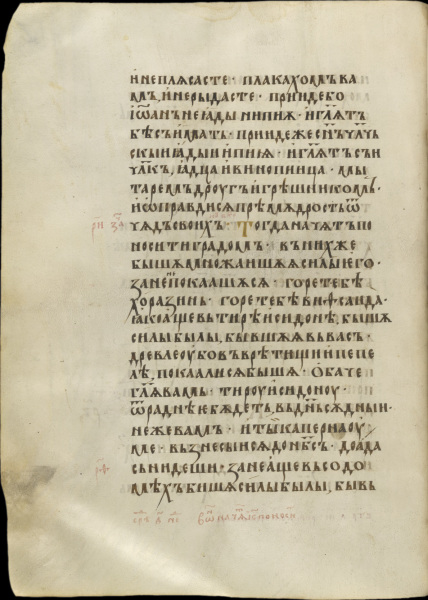 и не плѧсасте · плакахомъ ва
мъ, и не рыдасте · прииде бо
іѡ҃анъ не ꙗды ни пиѧ · и гл҃ѧтъ
бѣсъ имать · прииде же сн҃ъ чл҃чь
скыи ꙗды и пиѧ · и гл҃ѧтъ се и
чл҃къ, ꙗдца и винопиица · мы
таремъ дроугъ и грѣшникомъ ·
и ѡправдисѧ прѣмѫдрость ѿ
чѧдъ своихъ · Тогда начѧтъ по
носити градомъ · въ нихже
бышѧ множаишѧѧ силы его ·
зане не покаашѧсѧ · горе тебѣ
хоразинь · горе тебѣ виѳсаида ·
ꙗко аще въ тирѣ и сидонѣ, бышѧ
силы были, бывшѧѧ въ васъ ·
древле оубо въ врѣтищи и пепе
лѣ, покаалисѧ бышѧ · Обаче
гл҃ѧ вамъ · тироу и сидоноу ·
ѿраднѣе бѫдетъ, въ дн҃ь сѫдныи ·
неже вамъ · и ты капернаоу
ме · възнесыисѧ до нб҃съ · до ада
сънидеши · зане аще въ содо
мѣхъ бишѧ силы были, бывъ